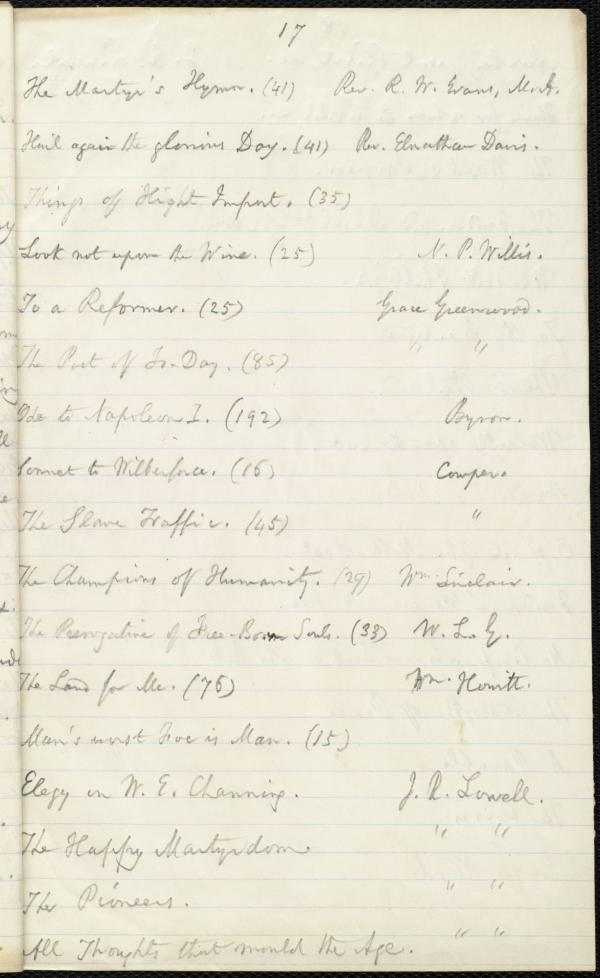 17
The Martyr's Hymn. (41) Rev. R. W. Evans, M.A.
Hail again the glorious Day. (41) Rev. Elnathan Davis.
Things of Might Import. (35)
Look not upon the Wine. (25) N. P. Willis.
To a Reformer. (25) Grace Greenwood.
The Poet of To-Day. (85) " "
Ode to Napoleon I. (192) Byron.
Sonnet to Wilberforce. (16) Cowper.
The Slave Traffic. (45) "
The Champions of Humanity. (29) Wm. Sinclair.
The Prerogative of Free-Born Souls. (33) W. L. G.
The Land for Me. (76) Wm. Howitt.
Man's worst Foe is Man. (15)
Elegy on W. E. Channing. J. R. Lowell.
The Happy Martyrdom. " "
The Pioneers. " "
All Thoughts that mould the Age. " "